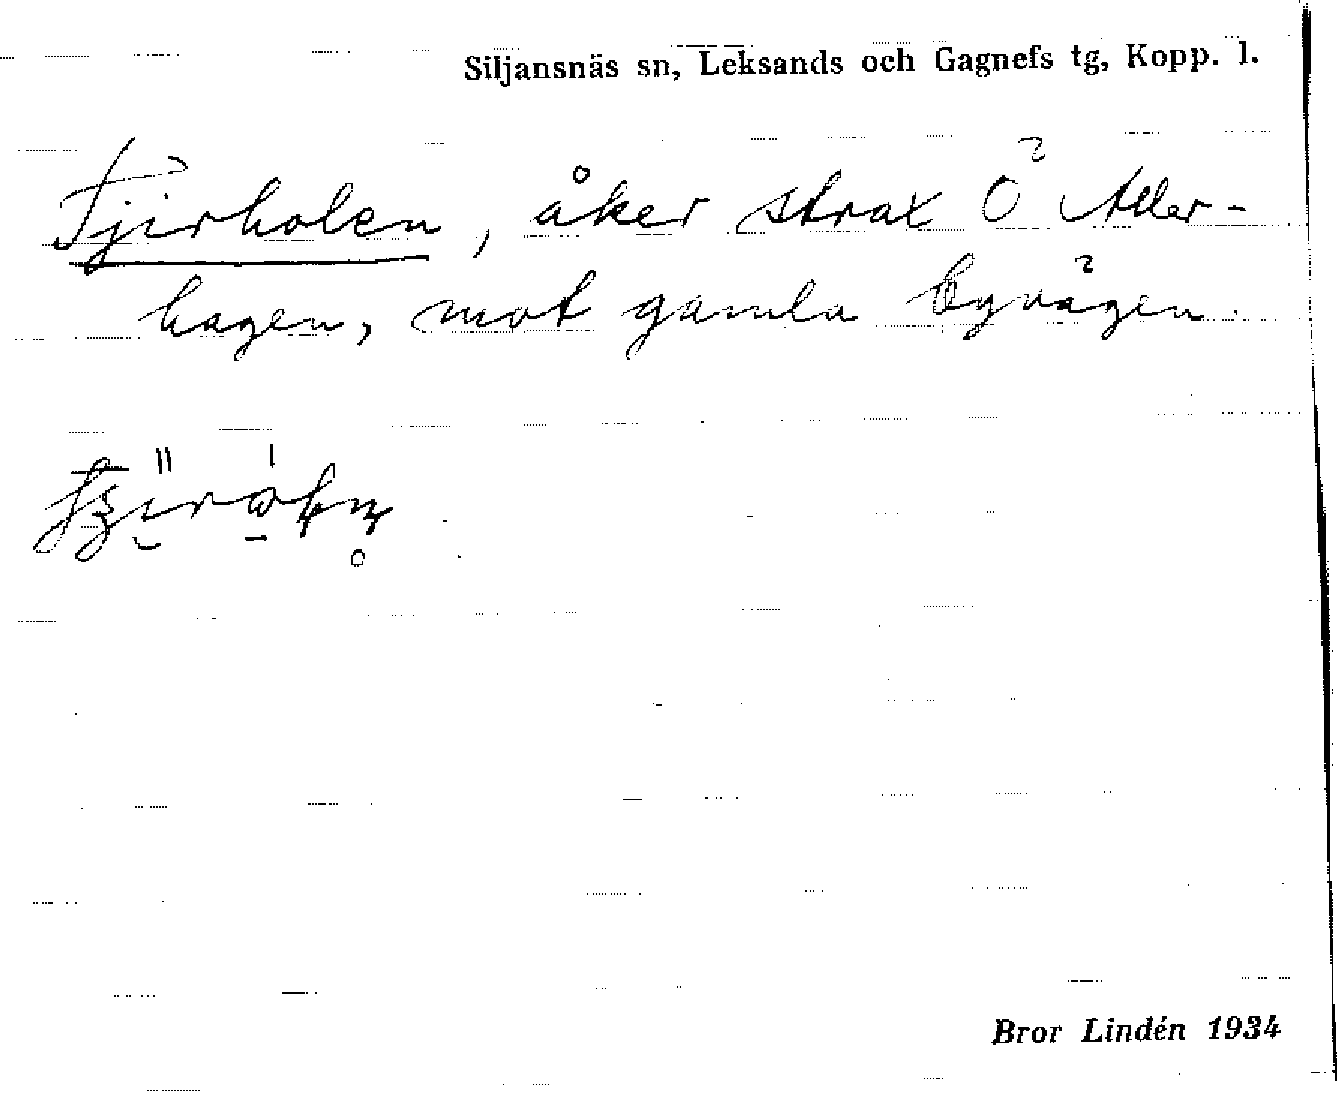 Siljansnäs sn, Leksands och Gagnefs tg, Kopp. l.
Tjirholen, åker strax Ö Aller-
hagen, mot gamla byvägen.
Bror Lindén 1934